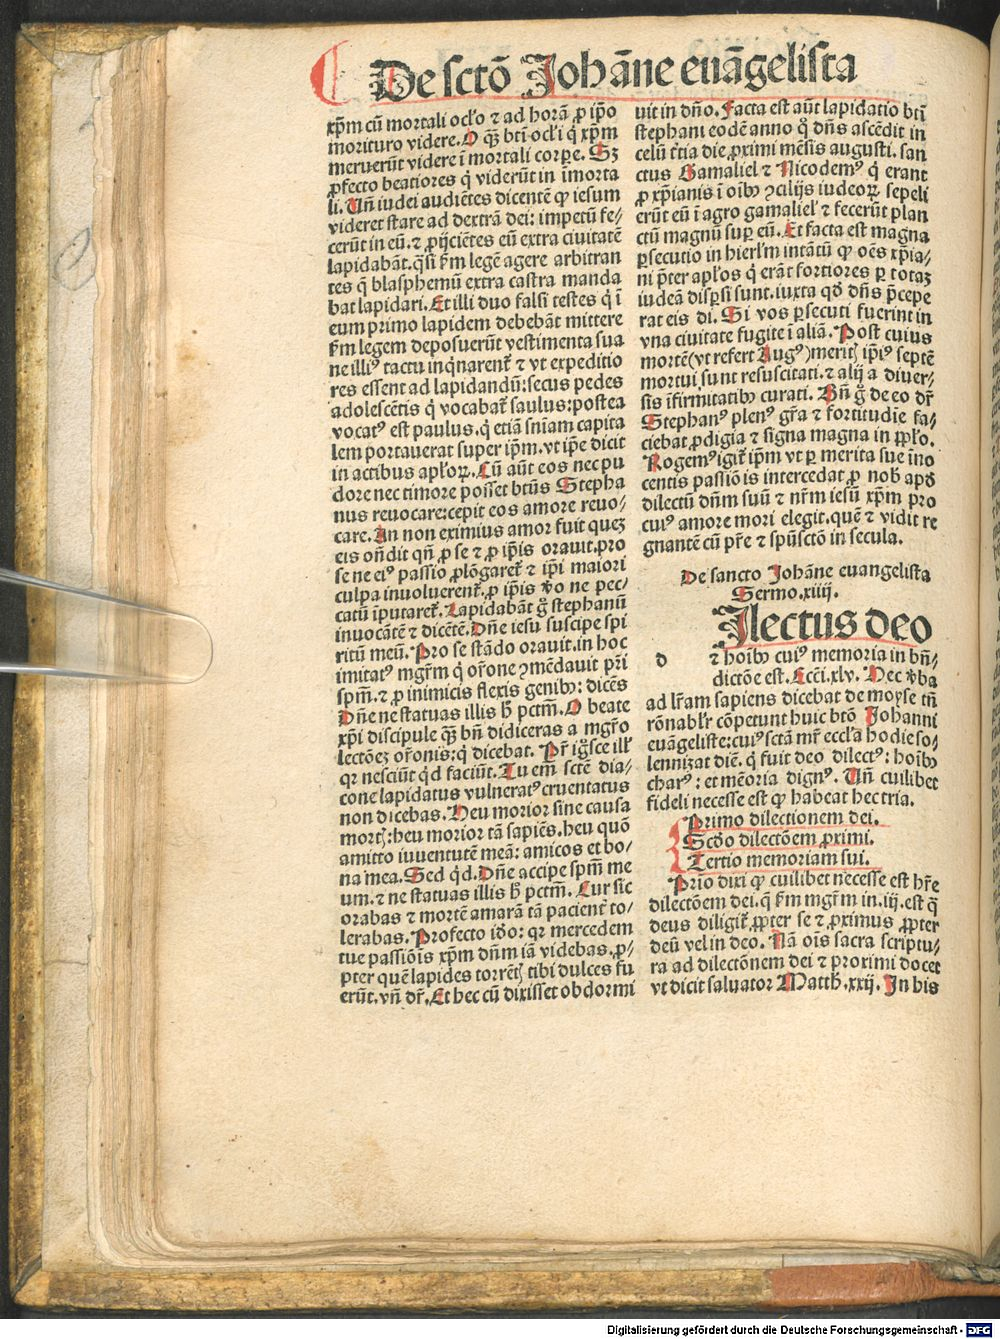 De sctō Johāne euāgelista
xp̄m cū mortali ocl'o ⁊ ad horā ꝓ ip̄o
morituro videre. O q̄ꝫ bt̄i ocl'i q̇ xp̄m
meruerūt videre ī mortali corꝑe. Sꝫ
ꝓfecto beatiores q̇ viderūt in īmorta
li. Uñ iudei audiētes dicentē ꝙ iesum
videret stare ad dextrā dei: impetū fe-
cerūt in eū. ⁊ ꝓijciētes eū extra ciuitatē
lapidabāt. q̄si ẜm legē agere arbitran
tes q̇ blasphemū extra castra manda
bat lapidari. Et illi duo falsi testes q̇ ī
eum primo lapidem debebāt mittere
ẜm legem deposuerūt vestimenta sua
ne illiꝰ tactu inq̇narent᷑ ⁊ vt expeditio
res essent ad lapidandū: secus pedes
adolescētis q̇ vocabat᷑ saulus: postea
vocatꝰ est paulus. q̇ etiā sn̄iam capita
lem portauerat super ip̄m. vt ip̄e dicit
in actibus apl'oꝝ. Cū aūt eos nec pu
dore nec timore posset bt̄us Stepha
nus reuocare: cepit eos amore reuo-
care. An non eximius amor fuit queꝫ
eis on̄dit qn̄ ꝓ se ⁊ ꝓ ip̄is orauit. pro
se ne eiꝰ passio ꝓlōgaret᷑ ⁊ ip̄i maiori
culpa inuoluerent᷑. ꝓ ip̄is v̓o ne pec-
catū īputaret᷑. Lapidabāt g̊ stephanū
inuocātē ⁊ dicētē. Dn̄e iesu suscipe spi
ritū meū. Pro se stādo orauit. in hoc
imitatꝰ mgr̄m q̇ or̄one ꝯmēdauit pr̄i
spm̄. ⁊ ꝓ inimicis flexis genibꝰ: dicēs
Dn̄e ne statuas illis h̄ pctm̄. O beate
xp̄i discipule q̄ꝫ bn̄ didiceras a mgr̄o
lectōeꝫ or̄onis: q̇ dicebat. Pr̄ ig̊sce ill'
qꝛ nesciūt q̇d faciūt. Tu em̄ sctē dia-
cone lapidatus vulneratꝰ cruentatus
non dicebas. Heu morior sine causa
mortꝭ: heu morior tā sapiēs. heu quō
amitto iuuentutē meā: amicos et bo-
na mea. Sed q̇d. Dn̄e accipe spm̄ me
um. ⁊ ne statuas illis h̄ pctm̄. Cur sic
orabas ⁊ mortē amarā tā pacient᷑ to-
lerabas. Profecto iḋo: qꝛ mercedem
tue passiōis xp̄m dn̄m iā videbas. ꝓ-
pter quē lapides torrētꝭ tibi dulces fu
erūt. vn̄ dr̄. Et hec cū dixisset obdormi
uit in dn̄o. Facta est aūt lapidatio bt̄i
stephani eodē anno q̊ dn̄s ascēdit in
celū t̓tia die ꝓximi mēsis augusti. san
ctus Gamaliel ⁊ Nicodemꝰ q̇ erant
ꝓ xp̄ianis ī oībꝰ ꝯcilijs iudeoꝝ sepeli
erūt eū ī agro gamaliel' ⁊ fecerūt plan
ctū magnū suꝑ eū. Et facta est magna
ꝑsecutio in hierl'm intātū ꝙ oēs xp̄ia-
ni p̄ter apl'os q̇ erāt fortiores ꝑ totaꝫ
iudeā disꝑsi sunt. iuxta qḋ dn̄s p̄cepe
rat eis di. Si vos ꝑsecuti fuerint in
vna ciuitate fugite ī aliā. Post cuius
mortē (vt refert Augꝰ) meritꝭ ip̄iꝰ septē
mortui sunt resuscitati. ⁊ alij a diuer-
sis īfirmitatibꝰ curati. Bn̄ g̊ de eo dr̄
Stephanꝰ plenꝰ gr̄a ⁊ fortitudīe fa-
ciebat ꝓdigia ⁊ signa magna in ppl'o.
Rogemꝰ igit᷑ ip̄m vt ꝑ merita sue īno
centis passiōis intercedat ꝓ nob̄ apḋ
dilectū dn̄m suū ⁊ nr̄m iesū xp̄m pro
cuiꝰ amore mori elegit. quē ⁊ vidit re
gnantē cū pr̄e ⁊ spūsctō in secula.
De sancto Johāne euangelista
Sermo. xiiij.
Ilectus deo
d ⁊ hoībꝰ cuiꝰ memoria in bn̄-
dictōe est. Ecci. xlv. Hec v̓ba
ad lr̄am sapiens dicebat de moyse tn̄
rōnabl'r cōpetunt huic btō Johanni
euāgeliste: cuiꝰ sctā mr̄ eccl'a hodie so-
lennizat diē. q̇ fuit deo dilectꝰ: hoībꝰ
charꝰ: et mēoria dignꝰ. Uñ cuilibet
fideli necesse est ꝙ habeat hec tria.
Primo dilectionem dei.
Scḋo dilectōem ꝓximi.
Tertio memoriam sui.
Prīo dixi ꝙ cuilibet necesse est hr̄e
dilectōem dei. q̄ ẜm mgr̄m in. iij. est q̄
deus diligit᷑ ꝓpter se ⁊ ꝓximus ꝓpter
deū vel in deo. Nā oīs sacra scriptu-
ra ad dilectōnem dei ⁊ proximi docet
vt dicit saluator Matth. xxij. In his
Digitalisierung gefördert durch die Deutsche Forschungsgemeinschaft - DFG